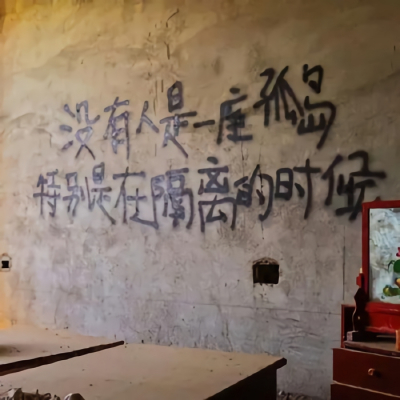 没有人是一座孤岛
特别是在隔离的时候